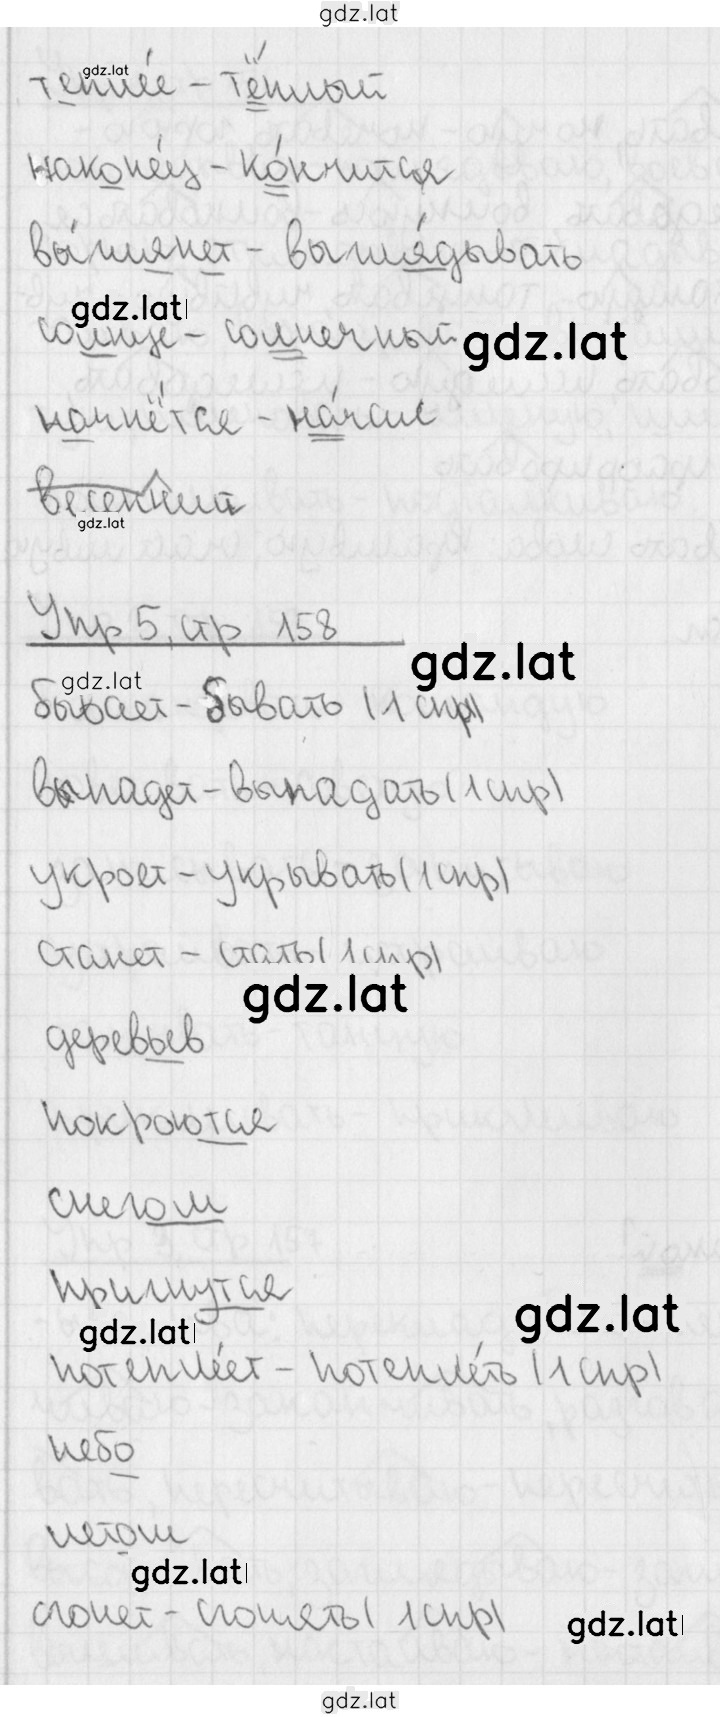 gdz.lat
теплее – тёплый
gdz.lat
наконец – кончится
выглянет – выглядывать
gdz.lat
солнце – солнечный
gdz.lat
начнётся – начало
весенний
gdz.lat
Упр 5, стр 158
gdz.lat
gdz.lat
бывает – бывать (1 спр)
выпадет – выпадать (1 спр)
укроет – укрывать (1 спр)
станет – стать (1 спр)
gdz.lat
деревьев
покроются
снегом
прилнутся
gdz.lat
gdz.lat
потеплеет – потеплеть (1 спр)
небо
летом
gdz.lat
(1 спр)
gdz.lat
gdz.lat